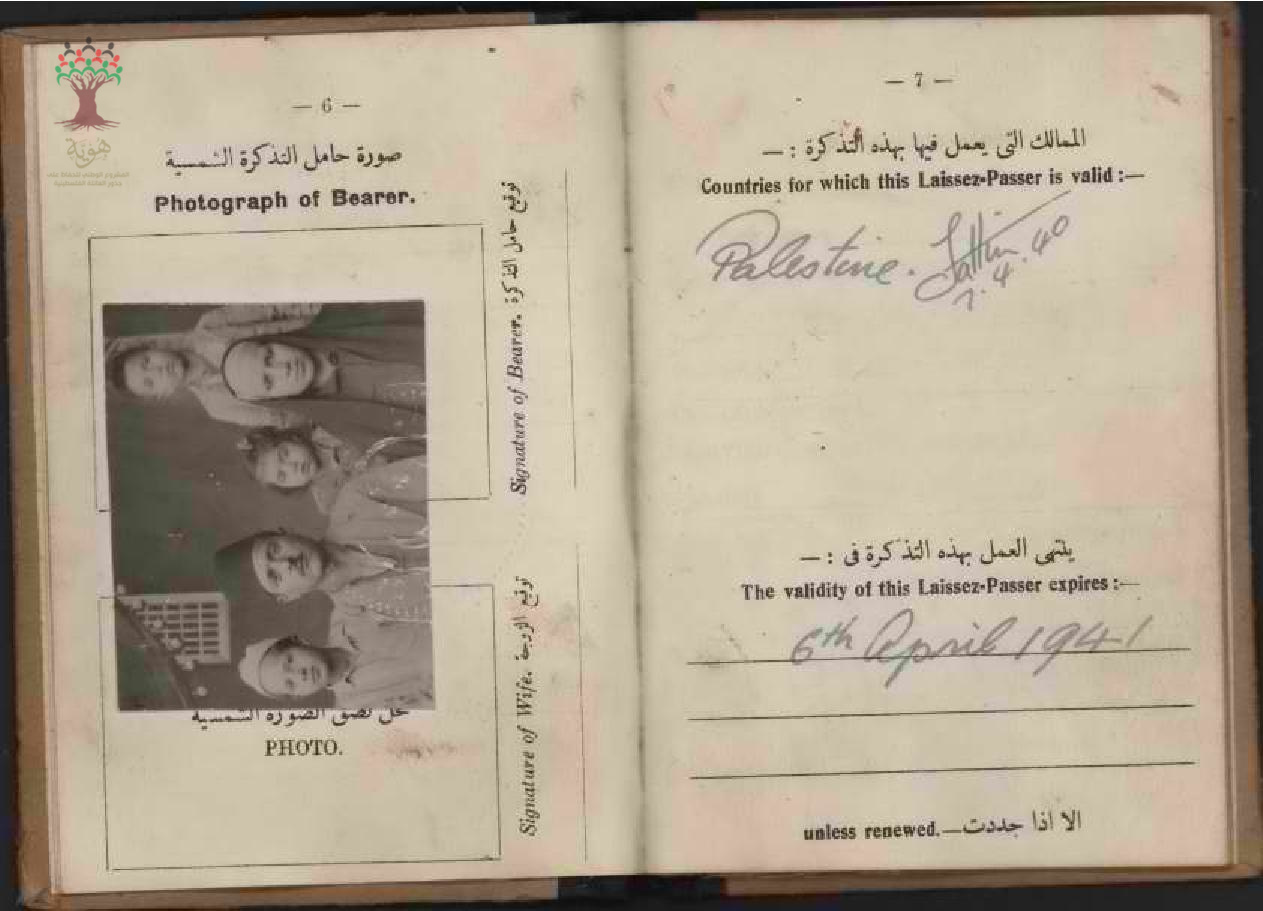 هوية
— 6 —
صورة حامل التذكرة الشمسية
Photograph of Bearer.
توقيع حامل التذكرة
Signature of Bearer.
توقيع الزوجة
Signature of Wife.
محل لصق الصورة الشمسية
PHOTO.
— 7 —
الممالك التى يعمل فيها بهذه التذكرة : —
Countries for which this Laissez-Passer is valid :—
Palestine.
7.4.40
ينتهى العمل بهذه التذكرة فى : —
The validity of this Laissez-Passer expires :—
6th April 1941
الا اذا جددت
unless renewed.—